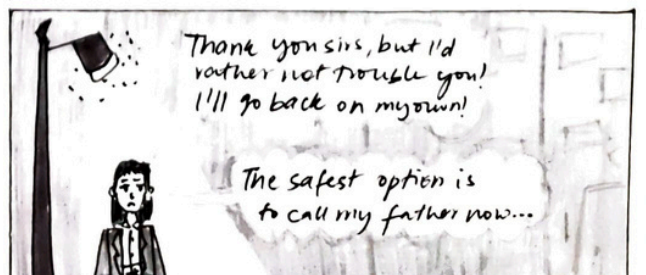 Thank you sirs, but I'd
rather not trouble you!
I'll go back on my own!
The safest option is
to call my father now...